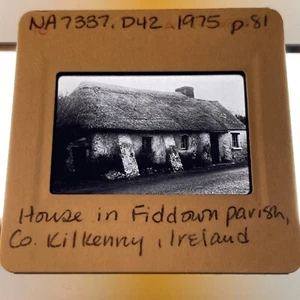 NA7337.D42 1975 p.81
House in Fiddown parish,
Co. Kilkenny, Ireland